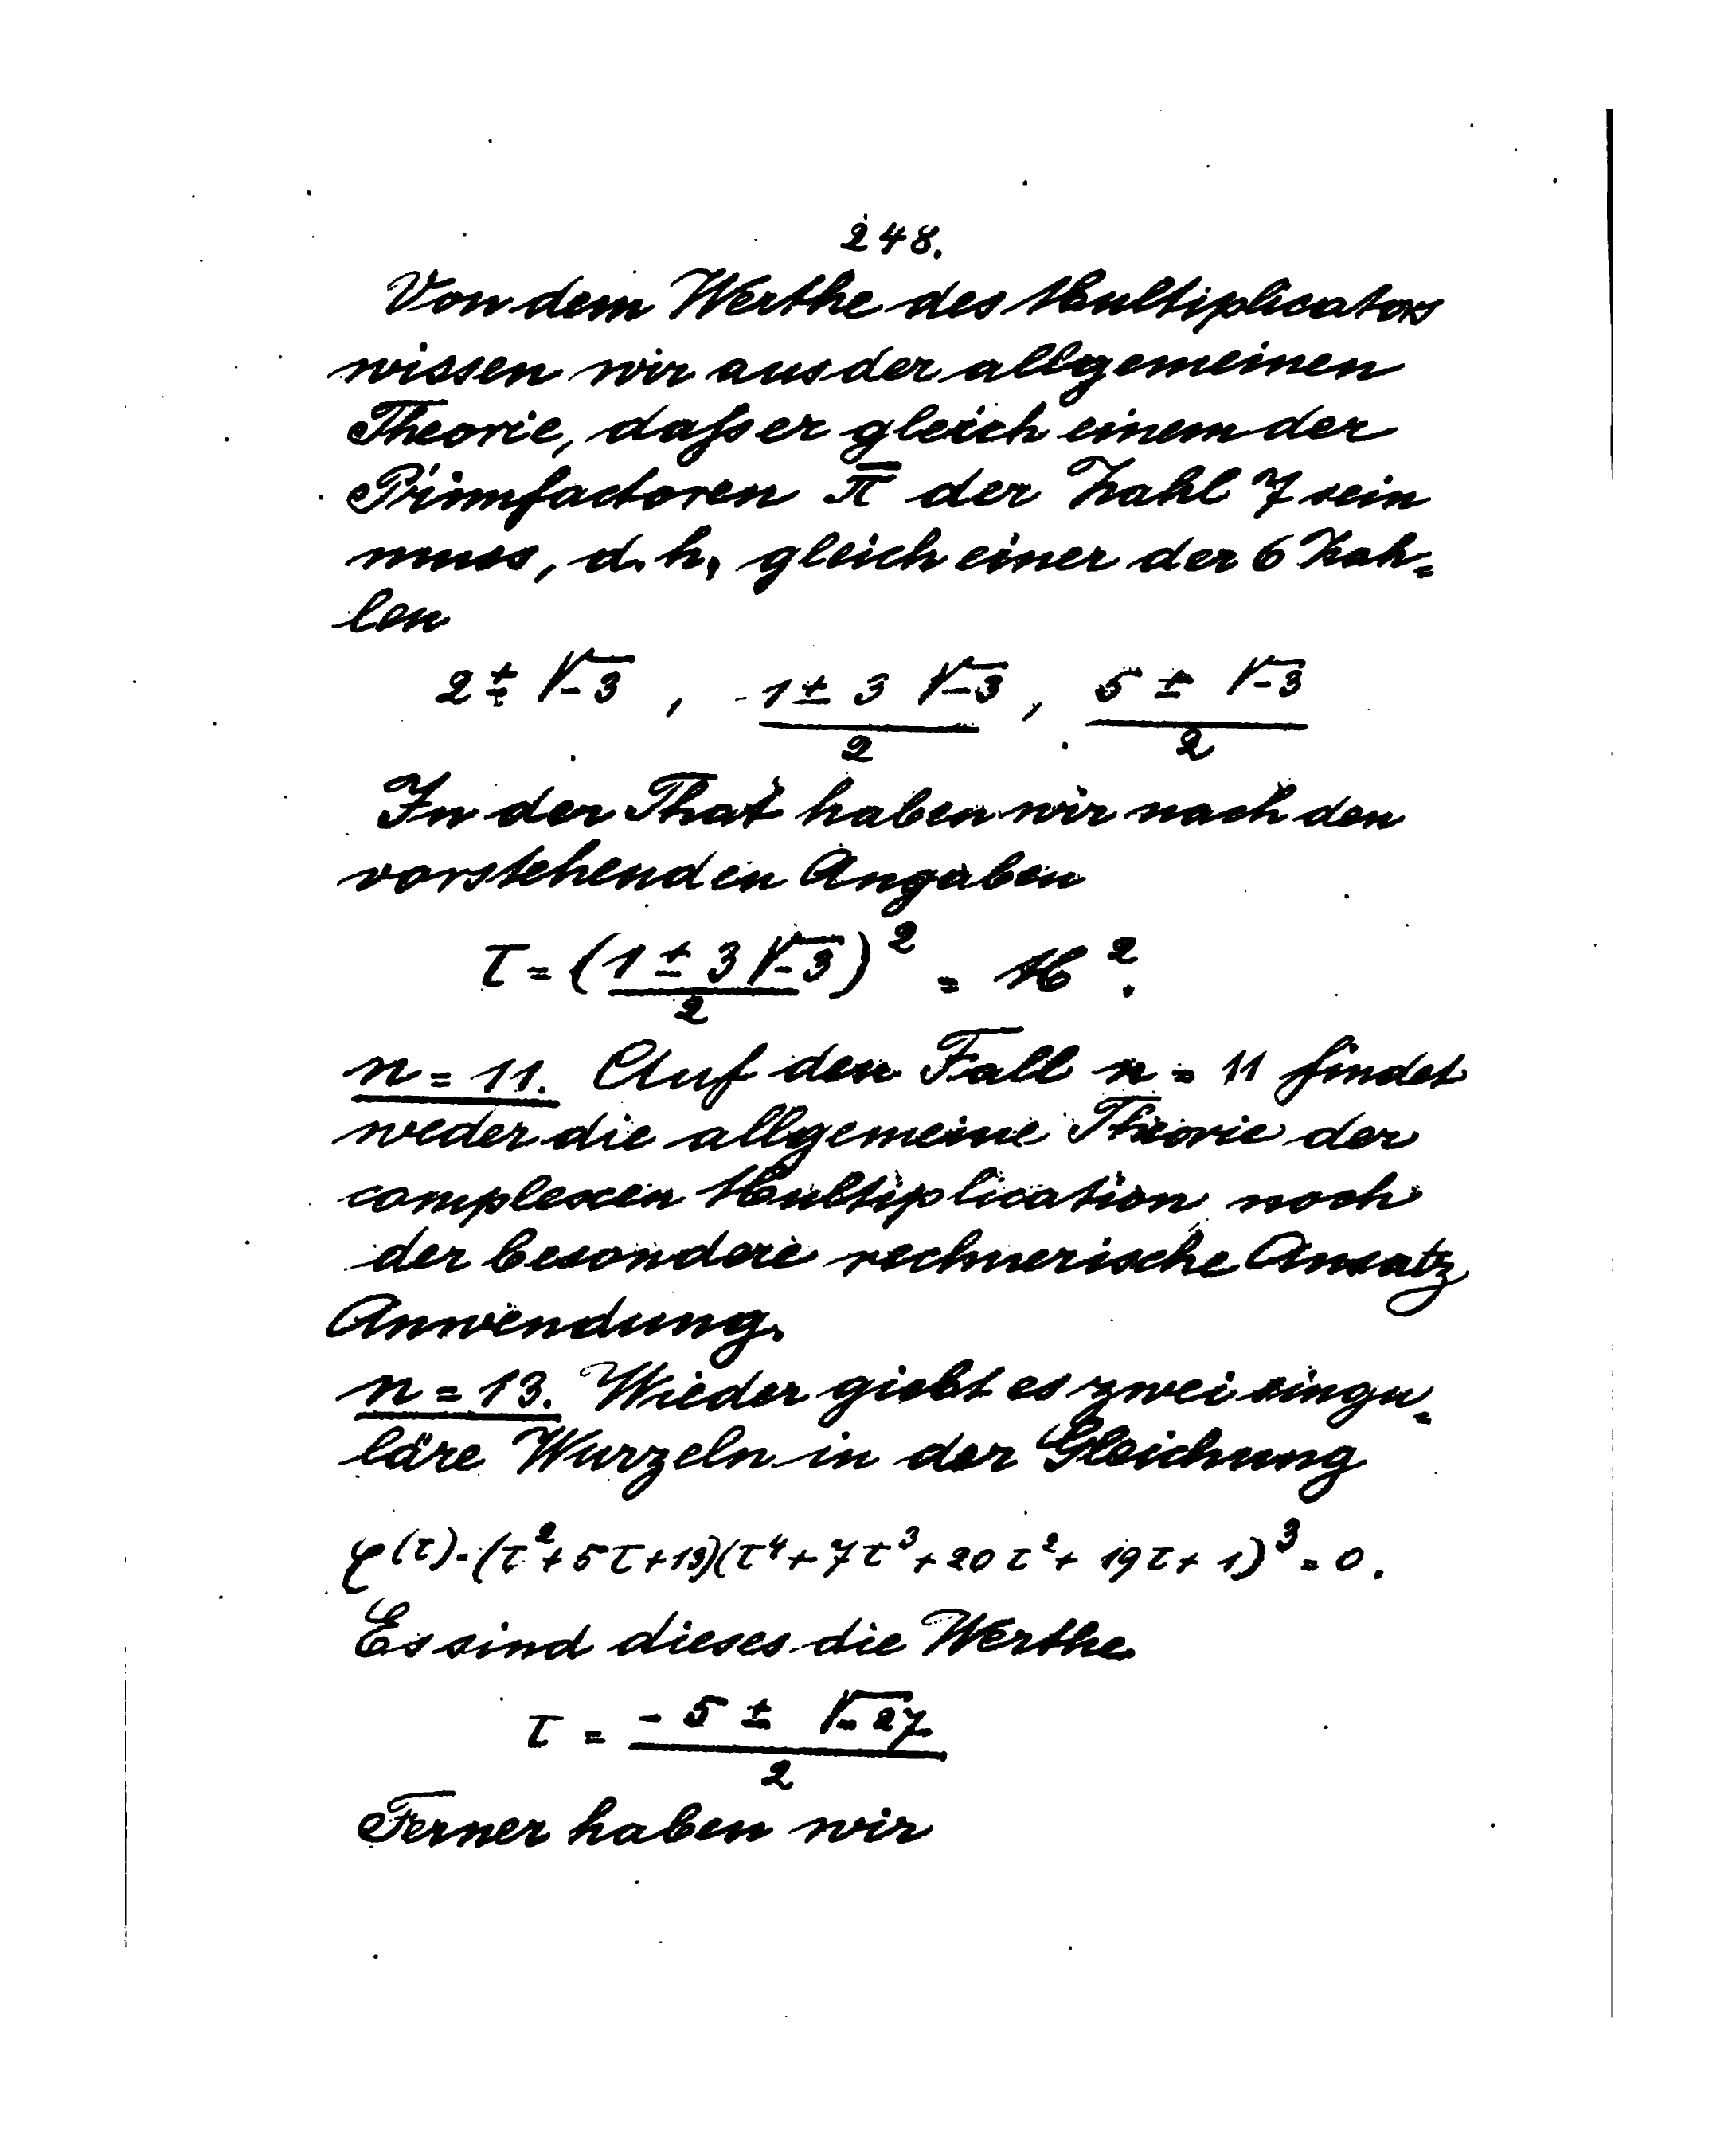 248.
Von dem Werthe des Multiplicators
wissen wir aus der allgemeinen
Theorie, dafs er gleich einem der
Primfactoren π̅ der Zahl 7 sein
muss, d. h. gleich einer der 6 Zah=
len
2 ± √-3 , (1 ± 3 √-3)/2 , (5 ± √-3)/2
In der That haben wir nach den
vorstehenden Angaben
τ = ((1 ± 3√-3)/2)² = M².
n = 11. Auf den Fall n = 11 findet
weder die allgemeine Theorie der
complexen Multiplication noch
der besondere rechnerische Ansatz
Anwendung.
n = 13. Wieder giebt es zwei singu=
läre Wurzeln in der Gleichung
φ(τ) = (τ² + 5τ + 13)(τ⁴ + 7τ³ + 20τ² + 19τ + 1)³ = 0.
Es sind dieses die Werthe
τ = (-5 ± √-27)/2
Ferner haben wir